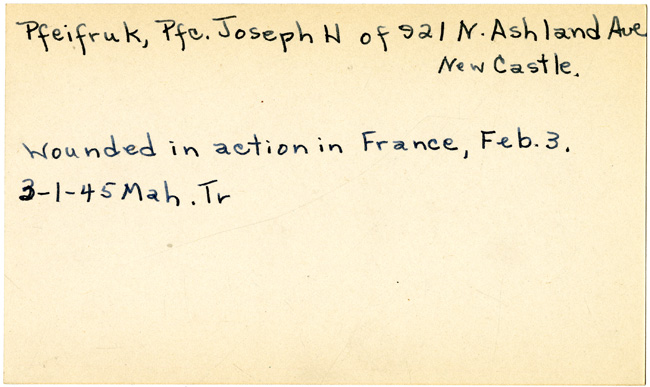 Pfeifruk, Pfc. Joseph H of 921 N. Ashland Ave
New Castle.
Wounded in action in France, Feb. 3.
3-1-45 Mah. Tr